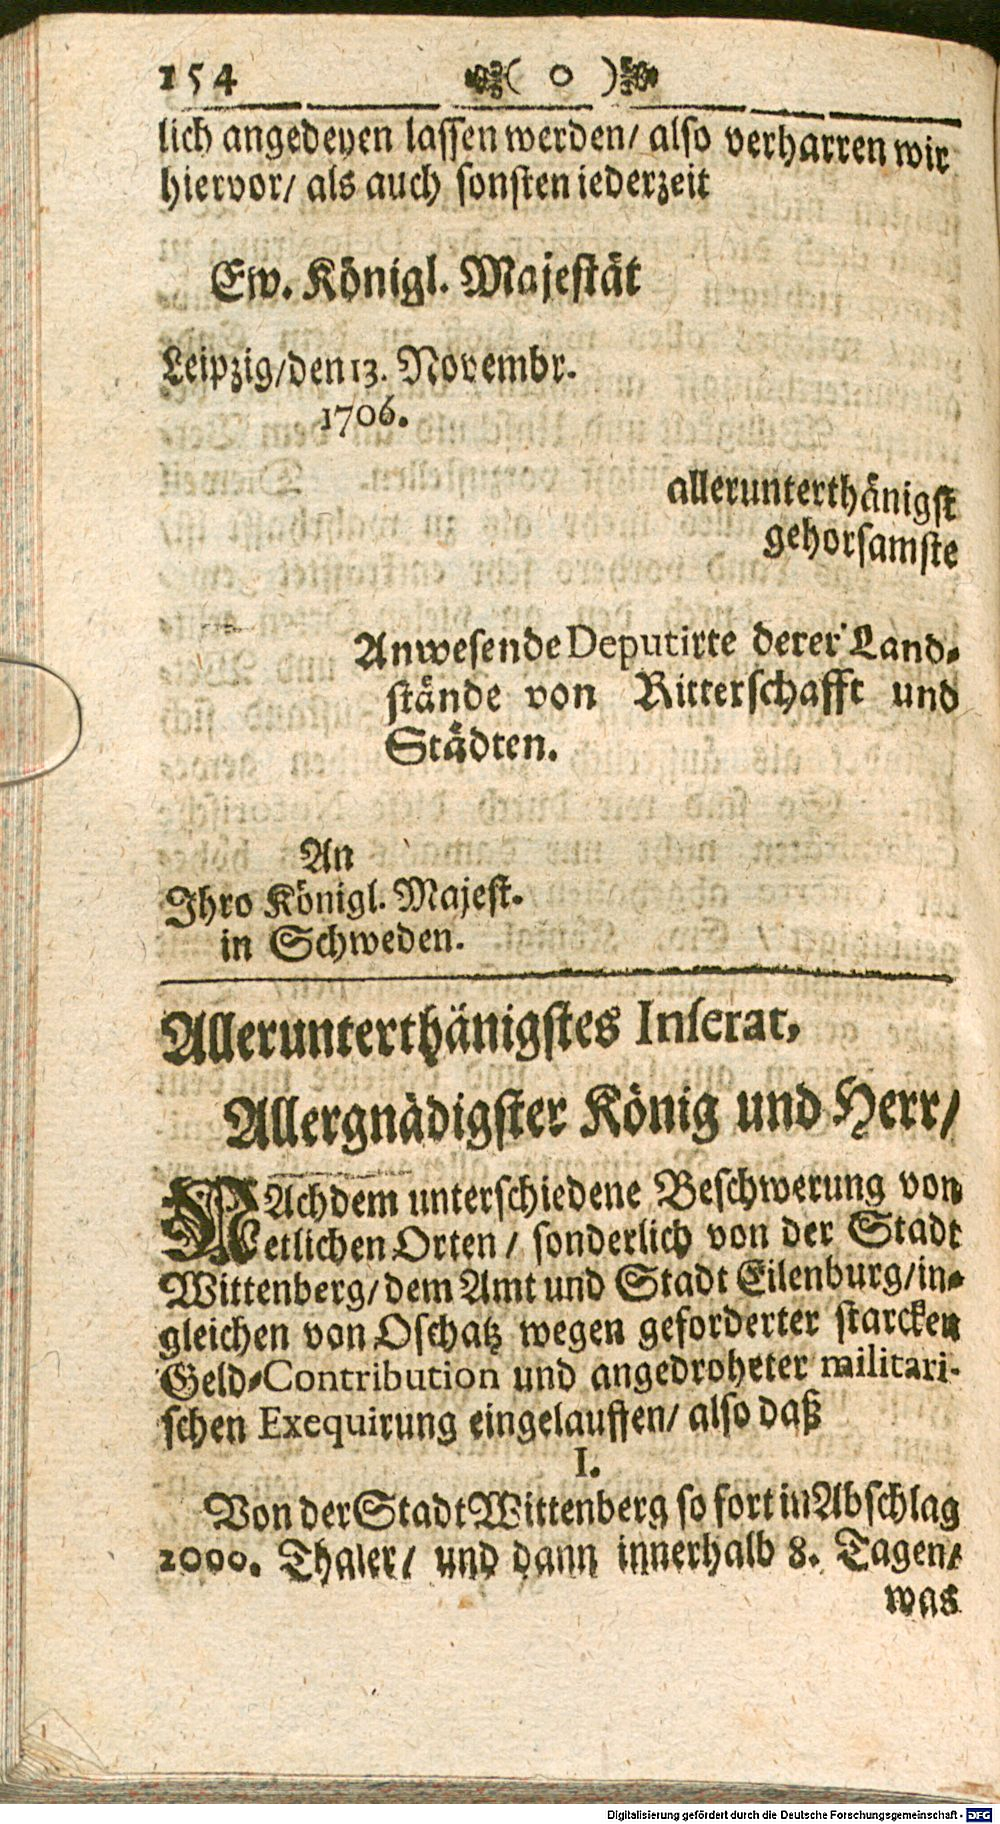 154 ( o )
lich angedeyen lassen werden/ also verharren wir
hiervor/ als auch sonsten iederzeit
Ew. Königl. Majestät
Leipzig/den 13. Novembr.
1706.
allerunterthänigst
gehorsamste
Anwesende Deputirte derer Land-
stände von Ritterschafft und
Städten.
An
Ihro Königl. Majest.
in Schweden.
Allerunterthänigstes Inserat,
Allergnädigster König und Herr/
NAchdem unterschiedene Beschwerung von
etlichen Orten / sonderlich von der Stadt
Wittenberg/ dem Amt und Stadt Eilenburg/in-
gleichen von Oschatz wegen geforderter starcken
Geld-Contribution und angedroheter militari-
schen Exequirung eingelauffen/ also daß
I.
Von der Stadt Wittenberg so fort in Abschlag
2000. Thaler/ und dann innerhalb 8. Tagen/
was
Digitalisierung gefördert durch die Deutsche Forschungsgemeinschaft - DFG